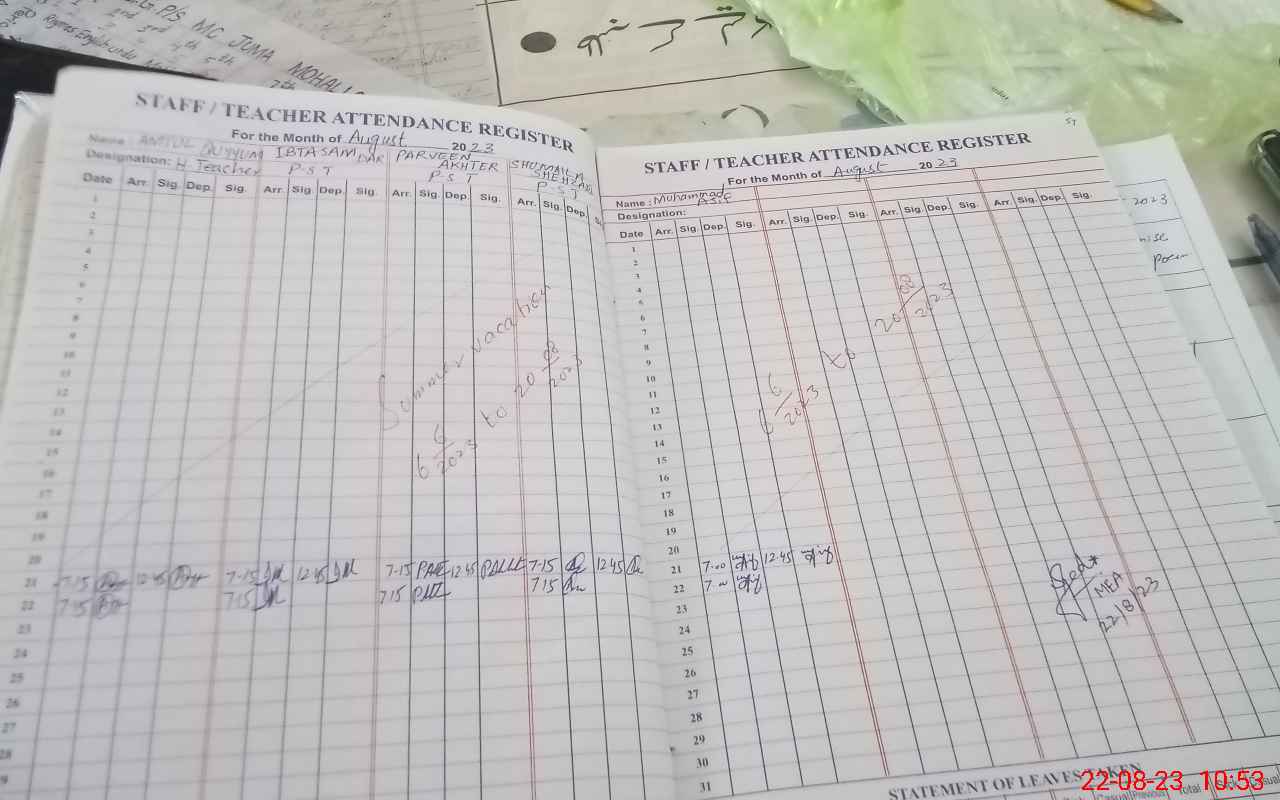 P/S MC JUMA MOHALL
STAFF / TEACHER ATTENDANCE REGISTER
For the Month of August 2023
Name : AMTUL QUYYUM IBTASAM DAR PARVEEN AKHTER SHUMAILA SHEHZADI
Designation: H Teacher P-S T P-S T P-S T
Date Arr. Sig. Dep. Sig. Arr. Sig. Dep. Sig. Arr. Sig. Dep. Sig. Arr. Sig. Dep.
1
2
3
4
5
6
7
8
9
10
11
12
13
14
15
16
17
18
19
20
Summer vacation
6 6/2023 to 20 08/2023
21 7-15 12 45 7-15 12 45 7-15 12 45 7-15 12 45
22 7-15 7-15 7 15 7 15
23
24
25
26
27
28
STAFF / TEACHER ATTENDANCE REGISTER
For the Month of August 2023
Name : Muhammad Asif
Designation:
Date Arr. Sig. Dep. Sig. Arr. Sig. Dep. Sig. Arr. Sig. Dep. Sig. Arr. Sig. Dep. Sig.
1
2
3
4
5
6
7
8
9
10
11
12
13
14
15
16
17
18
19
20
6 6/2023 to 20 08/2023
21 7-00 12 45
22 7-00
23
24
25
26
27
28
29
30
31
MEA
22/8/23
STATEMENT OF LEAVES TAKEN
Casual Previous Total
2023
Poem
22-08-23 10:53